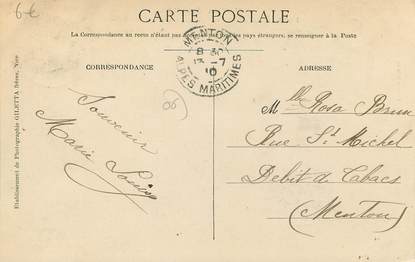 6€
CARTE POSTALE
La Correspondance au recto n'étant pas acceptée par tous les pays étrangers, se renseigner à la Poste
MENTON
8 30
13 - 7
10
ALPES MARITIMES
CORRESPONDANCE
ADRESSE
Souvenir
Marie Louise
06
Mlle Rosa Brun
Rue St Michel
Debit de Tabacs
(Menton)
Etablissement de Photographie GILETTA frères, Nice